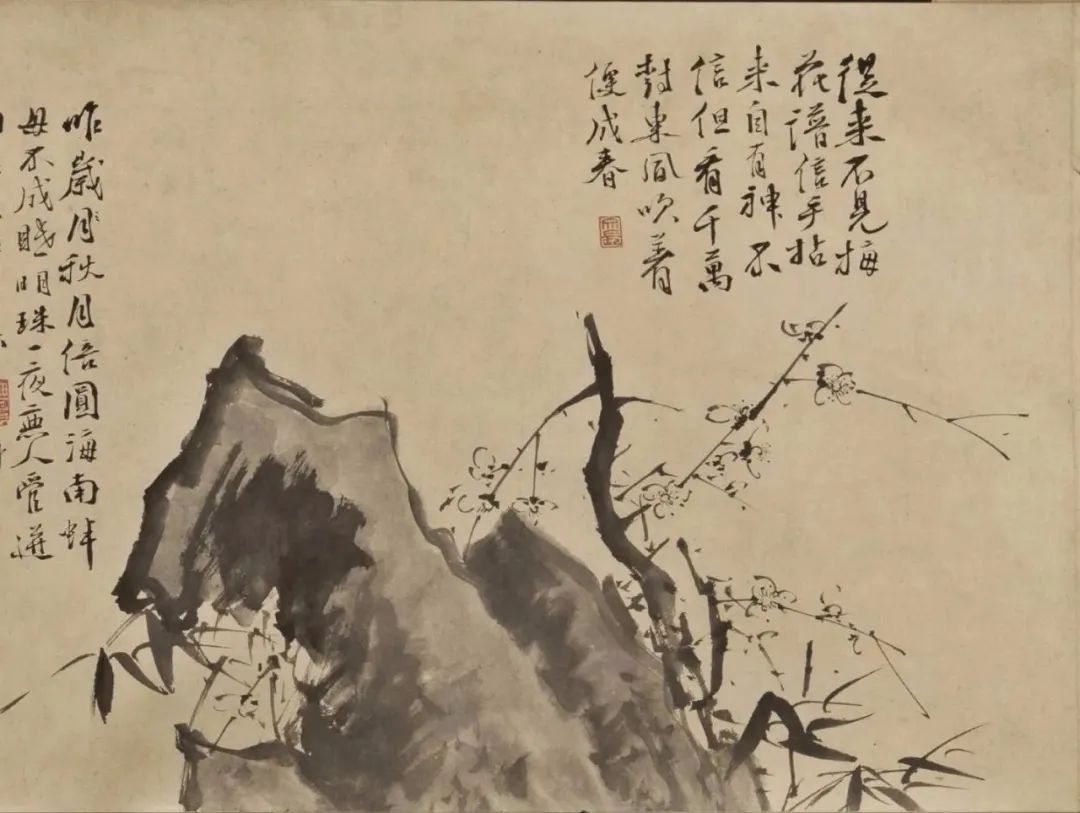 從来不見梅
花譜信手拈
来自有神不
信但看千萬
樹東風吹着
便成春
昨歲月秋月倍圓海南蚌
母不成眠明珠一夜無人管迸